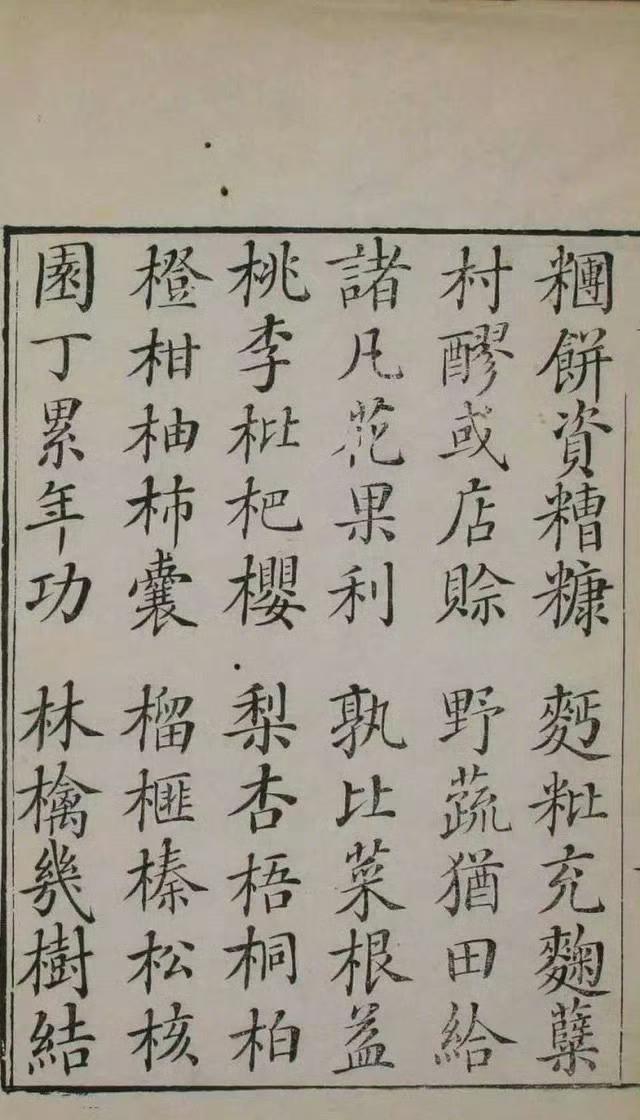 糰餅資糟糠 麪粃充麴糵
村醪或店賒 野蔬猶田給
諸凡花果利 孰比菜根益
桃李枇杷櫻 梨杏梧桐柏
橙柑柚柿囊 榴榧榛松核
園丁累年功 林檎幾樹結